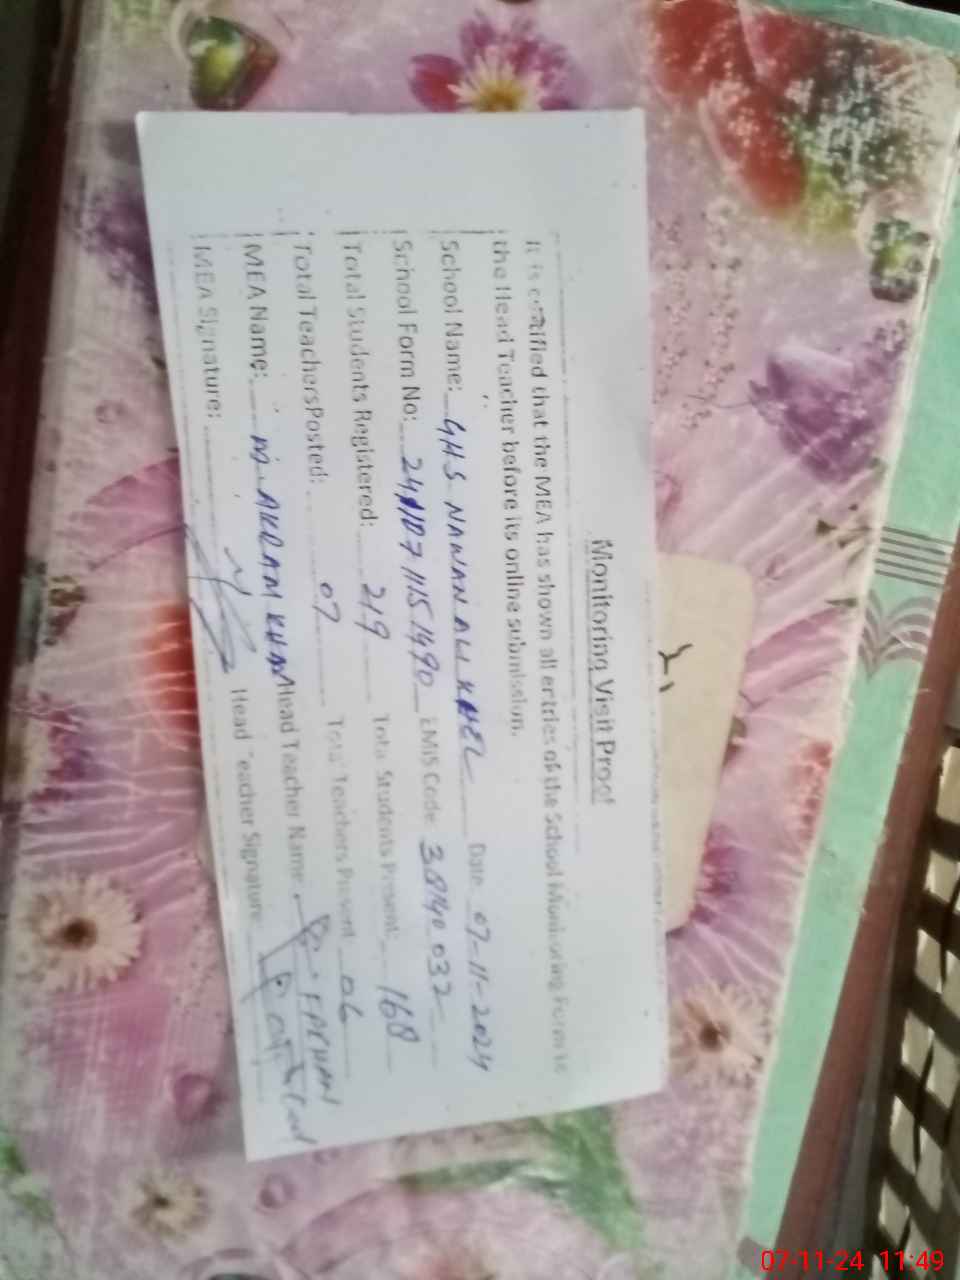 Monitoring Visit Proof
It is certified that the MEA has shown all entries of the School Monitoring Form to
the Head Teacher before its online submission.
School Name: GHS NAWAN ALI KHEL Date 07-11-2024
School Form No: 241107 1115 1490 EMIS Code 38140 032
Total Students Registered: 219 Total Students Present: 168
Total Teachers Posted: 07 Total Teachers Present 06
MEA Name: M. AKRAM KHAN Head Teacher Name FARMAN
MEA Signature: Head Teacher Signature:
07-11-24 11:49